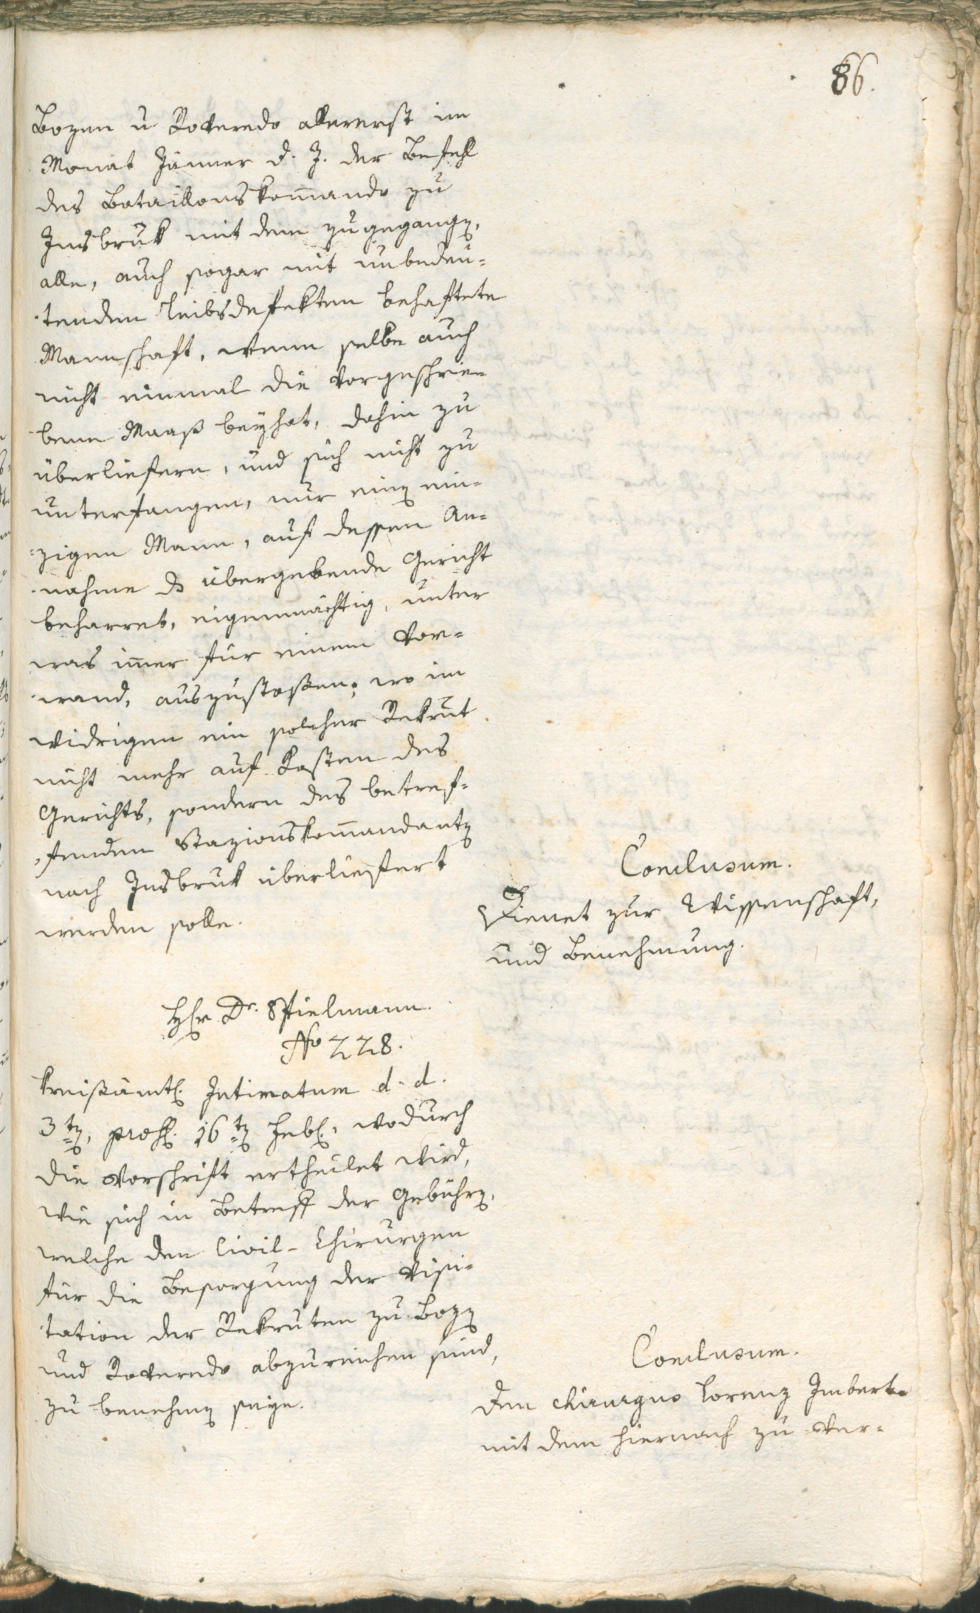 86.
Bozen u Roveredo allererst im
Monat Jänner d. J. der Befehl
des Bataillonskom̄ando zu
Insbruk mit dem zugegangen,
alle, auch sogar mit unbedeu-
tenden Leibsdefekten behaftete
Mannschaft, wenn selbe auch
nicht einmal die Vorgeschrie-
bene Maaß beyhat, dahin zu
überliefern, und sich nicht zu
unterfangen, nur einen ein-
zigen Mann, auf dessen An-
nahme ds übergebende Gericht
beharret, eigenmächtig, unter
was im̄er für einem Vor-
wand, auszustoßen; wo im
widrigen ein solcher Rekrut
nicht mehr auf Kosten des
Gerichts, sondern des betref-
fenden Stazionskom̄andanten
nach Insbruk überliefert
werden solle.
Conclusum.
Dienet zur Wissenschaft,
und Benehmung.
Hr. Dr. Stielmann.
No 228.
Kreißämtl. Intimatum d. d.
3ten, praes. 16ten Feb. wodurch
die Vorschrift ertheilet wird,
wie sich in Betreff der Gebühren,
welche den Civil-Chirurgen
für die Besorgung der Visi-
tation der Rekruten zu Bozen
und Roveredo abzureichen sind,
zu benehmen seye.
Conclusum.
Den Chirurgus Lorenz Imbert
mit dem hiernach zu Ver-